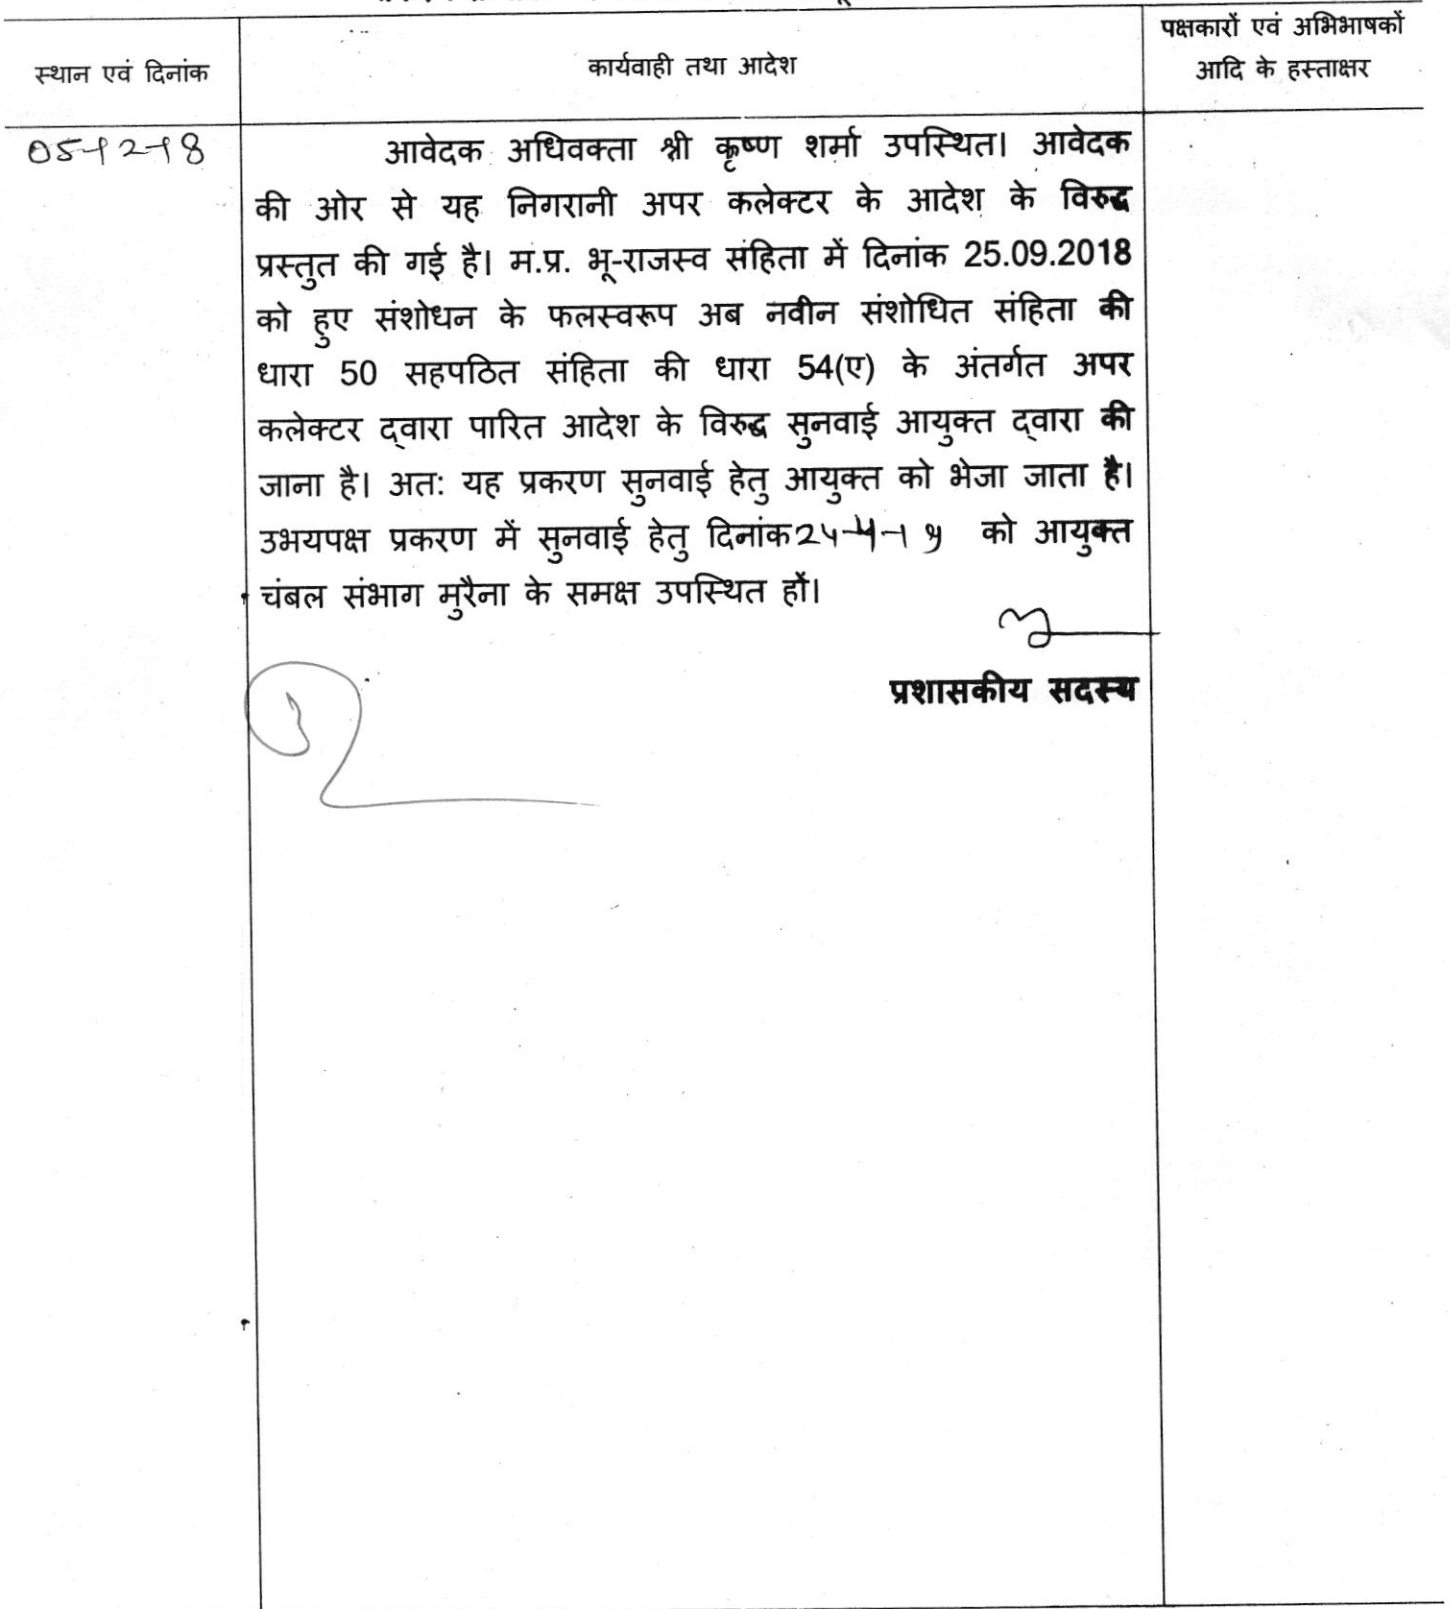 स्थान एवं दिनांक
कार्यवाही तथा आदेश
पक्षकारों एवं अभिभाषकों
आदि के हस्ताक्षर
05-12-18
आवेदक अधिवक्ता श्री कृष्ण शर्मा उपस्थित। आवेदक
की ओर से यह निगरानी अपर कलेक्टर के आदेश के विरुद्ध
प्रस्तुत की गई है। म.प्र. भू-राजस्व संहिता में दिनांक 25.09.2018
को हुए संशोधन के फलस्वरूप अब नवीन संशोधित संहिता की
धारा 50 सहपठित संहिता की धारा 54(ए) के अंतर्गत अपर
कलेक्टर द्वारा पारित आदेश के विरुद्ध सुनवाई आयुक्त द्वारा की
जाना है। अतः यह प्रकरण सुनवाई हेतु आयुक्त को भेजा जाता है।
उभयपक्ष प्रकरण में सुनवाई हेतु दिनांक को आयुक्त
चंबल संभाग मुरैना के समक्ष उपस्थित हों।
प्रशासकीय सदस्य